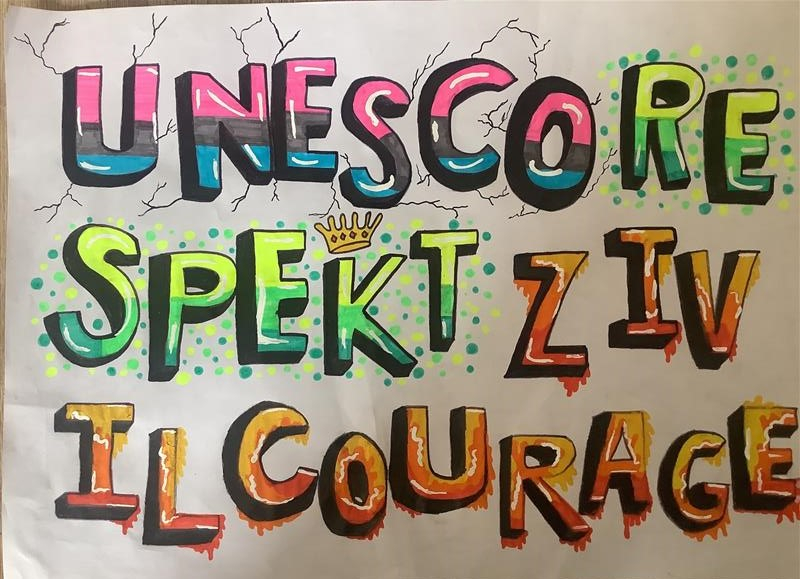 UNESCO RE
SPEKT ZIV
IL COURAGE